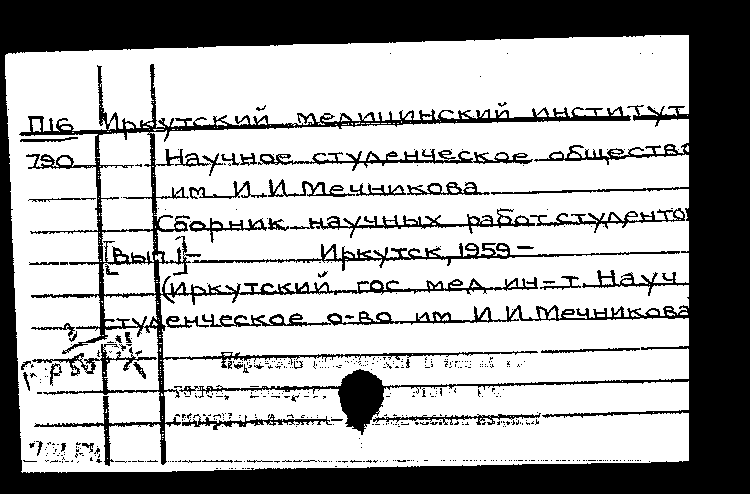 П16 Иркутский медицинский институт
790 Научное студенческое общество
им. И.И.Мечникова
Сборник научных работ студентов
[Вып.1]– Иркутск, 1959 –
(Иркутский гос мед ин=т. Науч
студенческое о-во им И И Мечникова